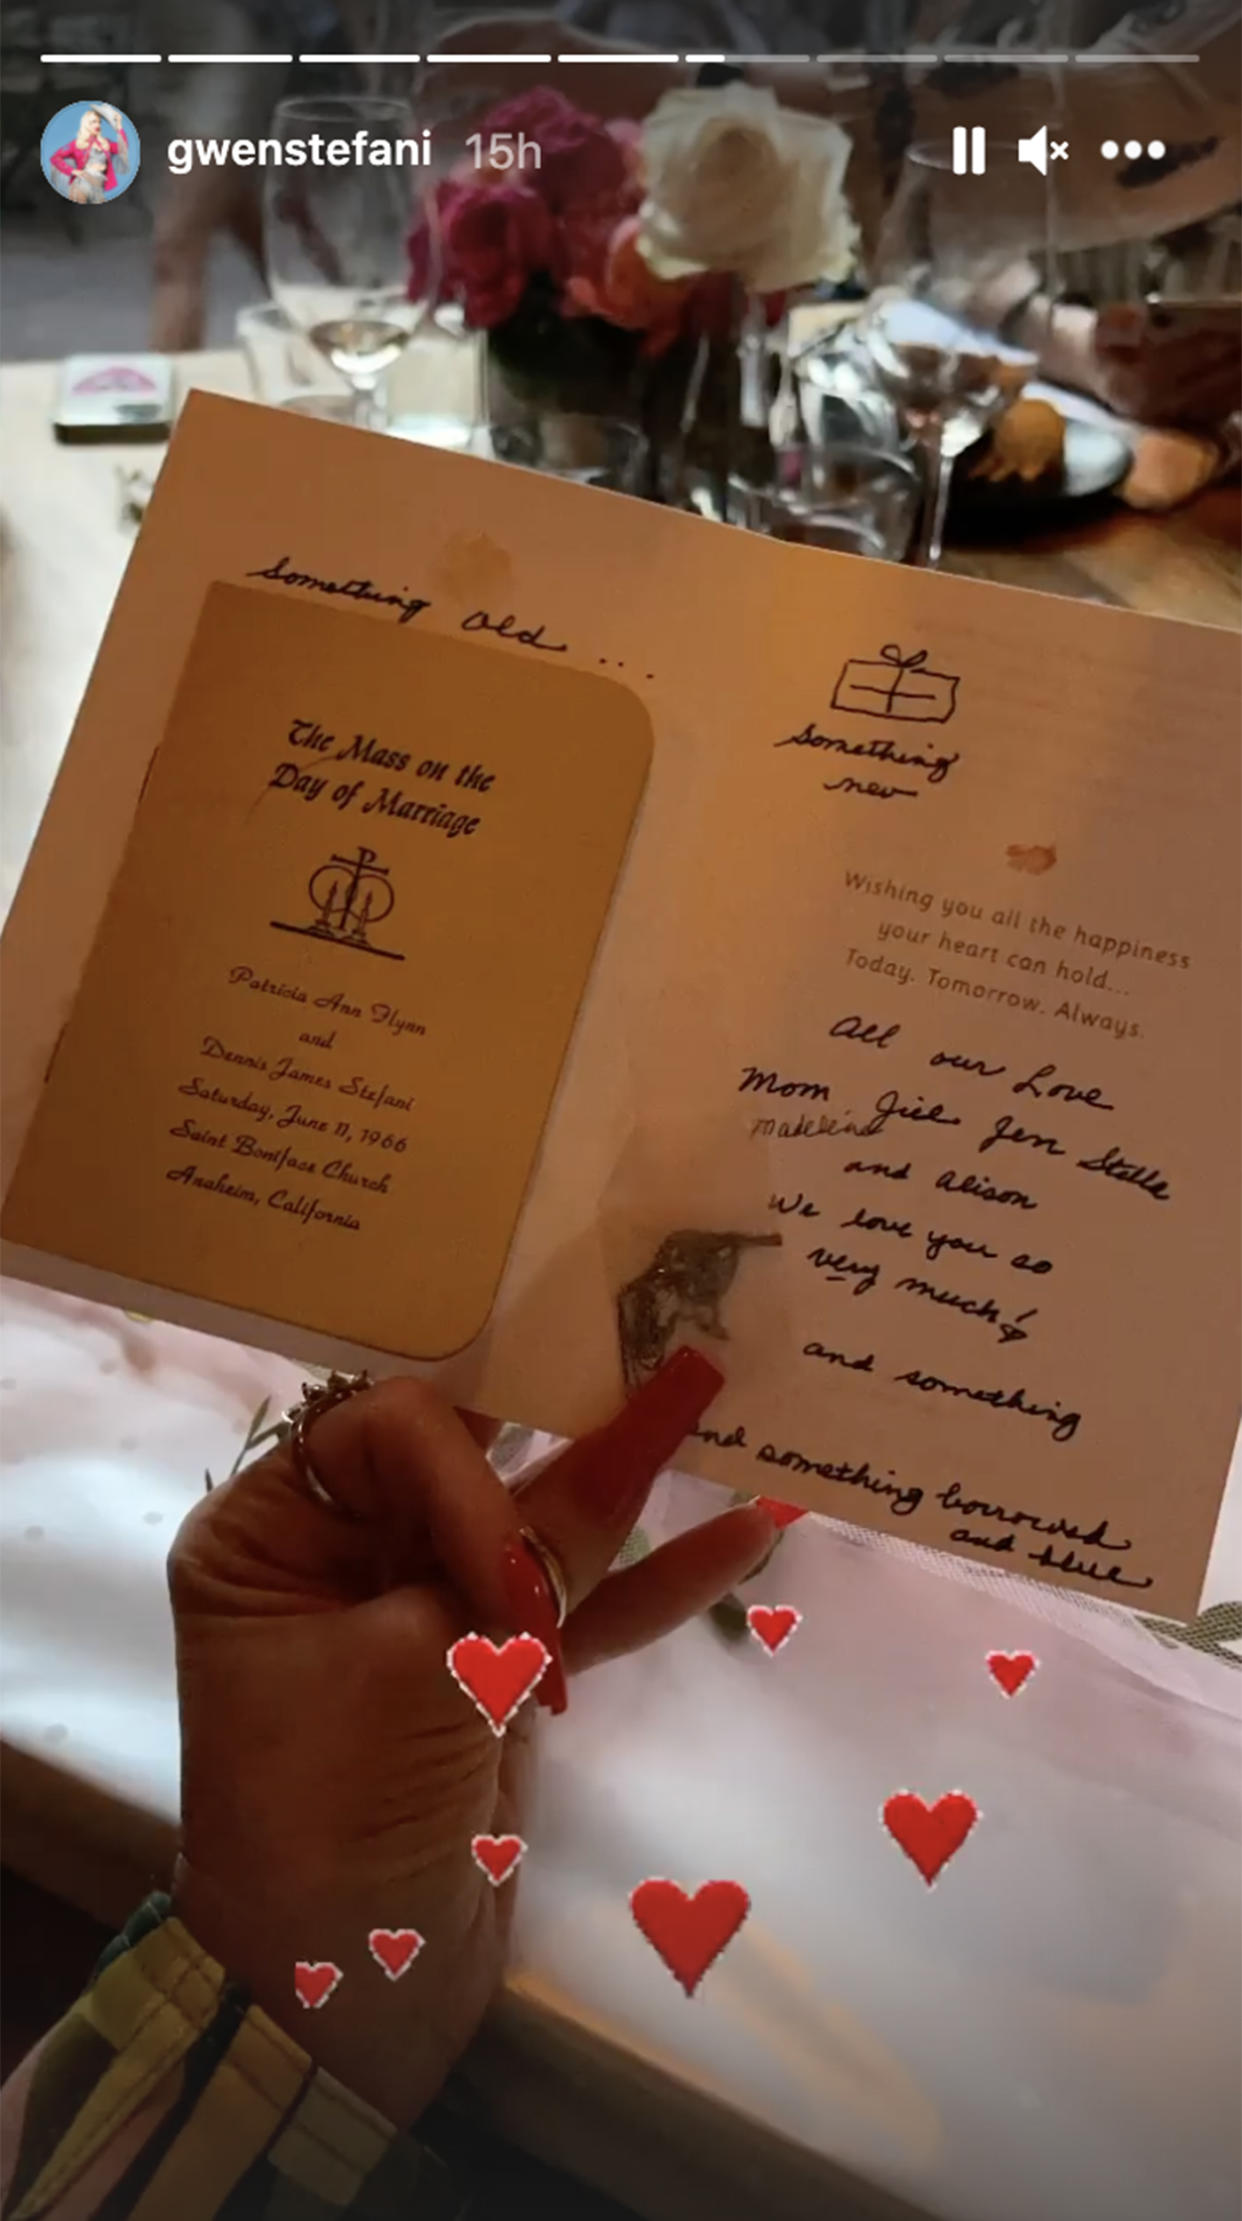 gwenstefani 15h
Something old ....
The Mass on the
Day of Marriage
Patricia Ann Flynn
and
Dennis James Stefani
Saturday, June 11, 1966
Saint Boniface Church
Anaheim, California
Something
new
Wishing you all the happiness
your heart can hold...
Today. Tomorrow. Always.
All our Love
Mom Jill Jen Stella
Madeline
and Alison
We love you so
very much!
and something
and something borrowed
and blue